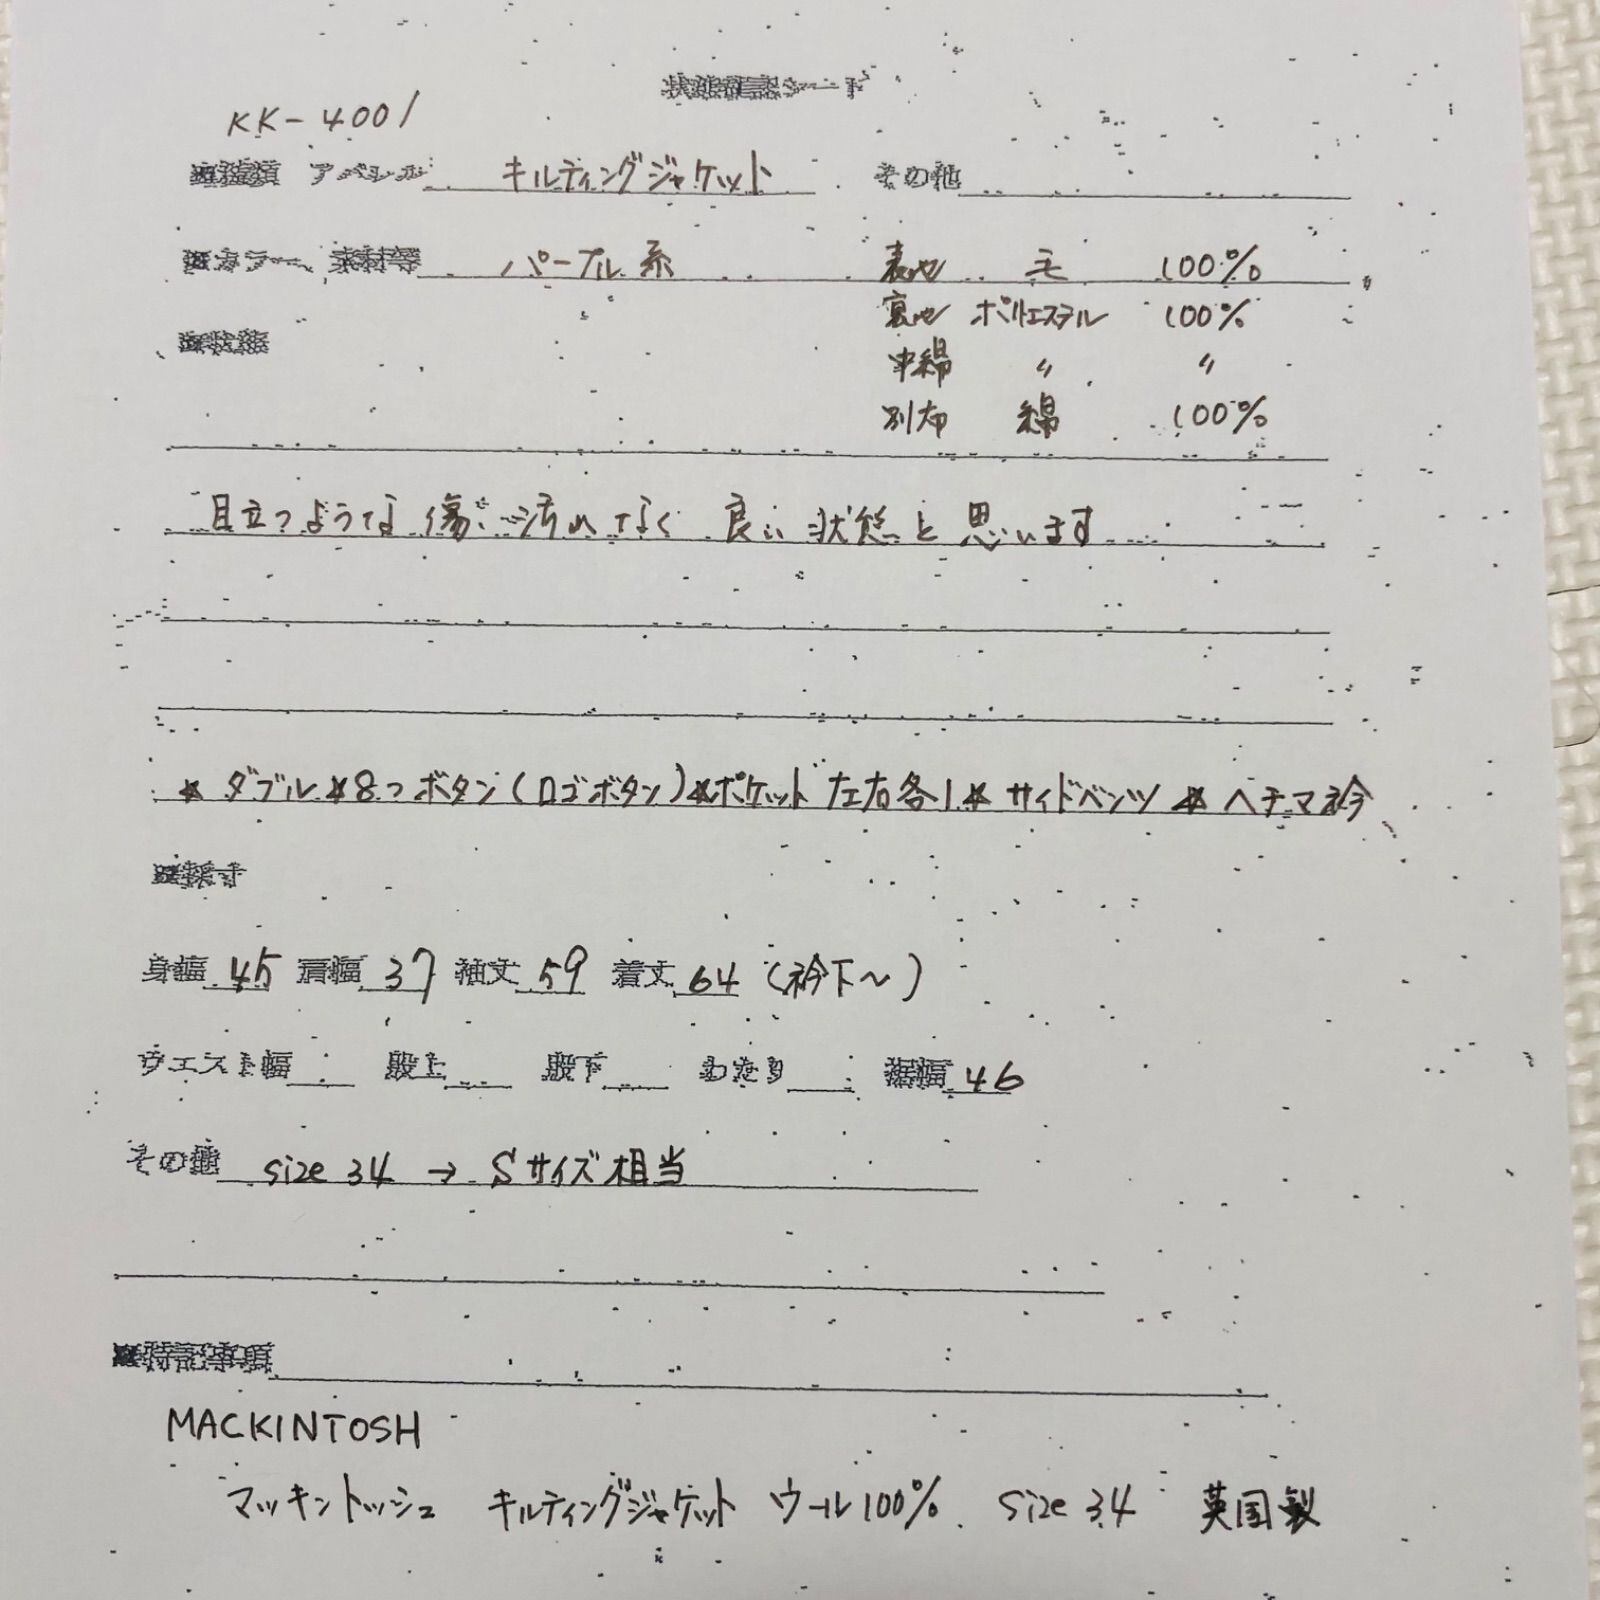 状態確認シート
KK-4001
■種類 アパレル キルティングジャケット その他
■カラー、素材等 パープル系 表地 毛 100%
裏地 ポリエステル 100%
■状態
中綿 〃 〃
別布 綿 100%
目立つような傷、汚れなく 良い状態と思います
★ ダブル★8つボタン(ロゴボタン)★ポケット 左右各1★ サイドベンツ ★ ヘチマ衿
■採寸
身幅 45 肩幅 37 袖丈 59 着丈 64 (衿下〜)
ウエスト幅 股上 股下 わたり 裾幅 46
その他 size 34 → Sサイズ相当
■特記事項
MACKINTOSH
マッキントッシュ キルティングジャケット ウール100% size 34 英国製